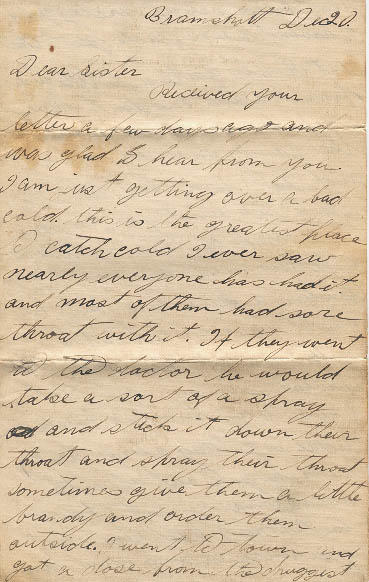 Bramshott Dec 20.
Dear Sister
Recieved your
letter a few days ago and
was glad to hear from you
I am just getting over a bad
cold. this is the greatest place
to catch cold I ever saw
nearly everyone has had it
and most of them had sore
throat with it. If they went
to the doctor he would
take a sort of a spray
and stick it down their
throat and spray their throat
sometimes give them a little
brandy and order them
outside. I went to town and
got a dose from the druggist